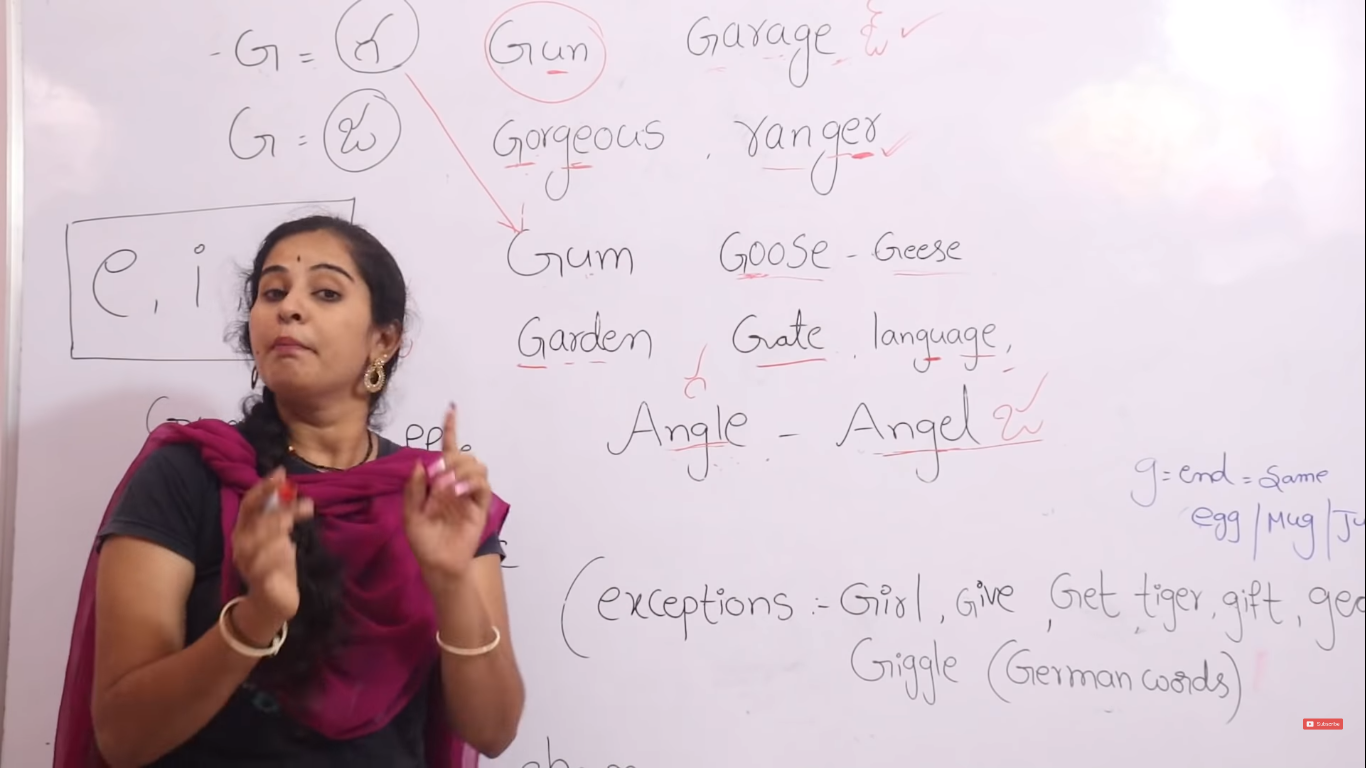 - G = గ Gun Garage జ ✓
G = జ Gorgeous, ranger ✓
e, i,
Gum Goose - Geese
Garden Gate, language,
గ
Angle - Angel జ ✓
g = end = Same
egg / Mug /
(exceptions :- Girl, Give, Get, tiger, gift,
Giggle (German words)
Subscribe